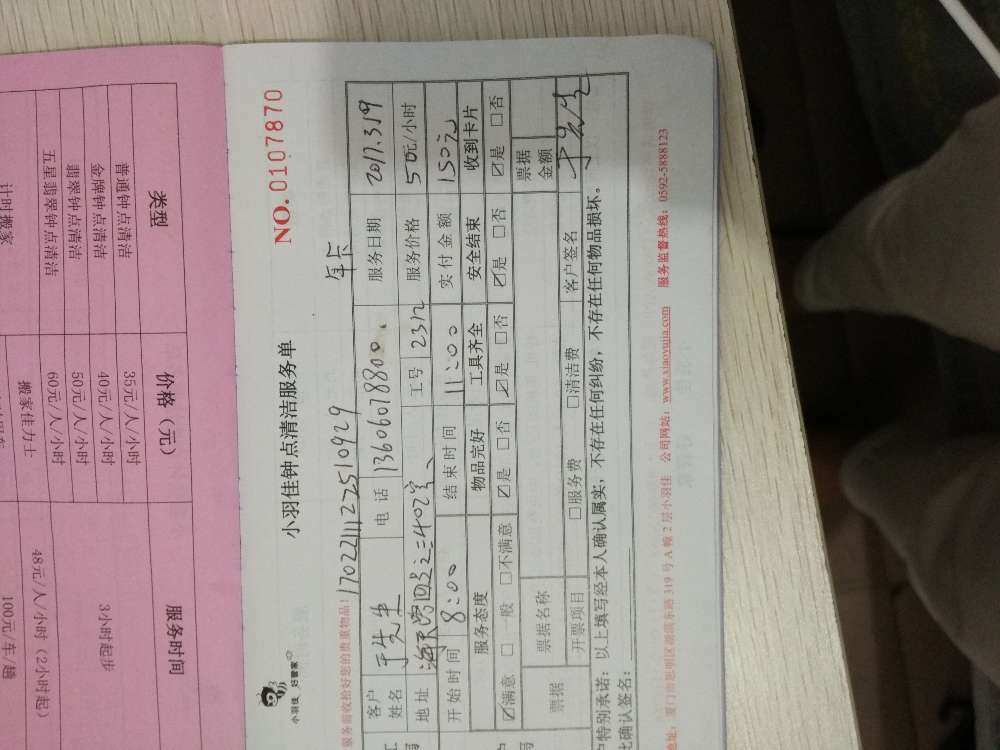 类型
价格（元）
服务时间
普通钟点清洁
35元/人/小时
金牌钟点清洁
40元/人/小时
3小时起步
翡翠钟点清洁
50元/人/小时
五星翡翠钟点清洁
60元/人/小时
48元/人/小时（2小时起）
计时搬家
搬家佳力士
100元/车/趟
NO. 0107870
小羽佳钟点清洁服务单
小羽佳 好管家
服务前收拾好您的贵重物品!
17022111122510929
年卡
客户姓名
于先生
电话
13606078800
服务日期
2017.3.19
地址
工号
2312
服务价格
50元/小时
开始时间
8:00
结束时间
11:00
实付金额
150元
服务态度
物品完好
工具齐全
安全结束
收到卡片
☑满意 □一般 □不满意
☑是 □否
☑是 □否
☑是 □否
☑是 □否
票据
票据名称
票据金额
开票项目
□服务费
□清洁费
客户签名
于先生
户特别承诺：以上填写经本人确认属实，不存在任何纠纷，不存在任何物品损坏。
比确认签名：
地址：厦门市思明区 319号A幢2层小羽佳
公司网站：www.xiaoyujia.com
服务监督热线：0592-5888123